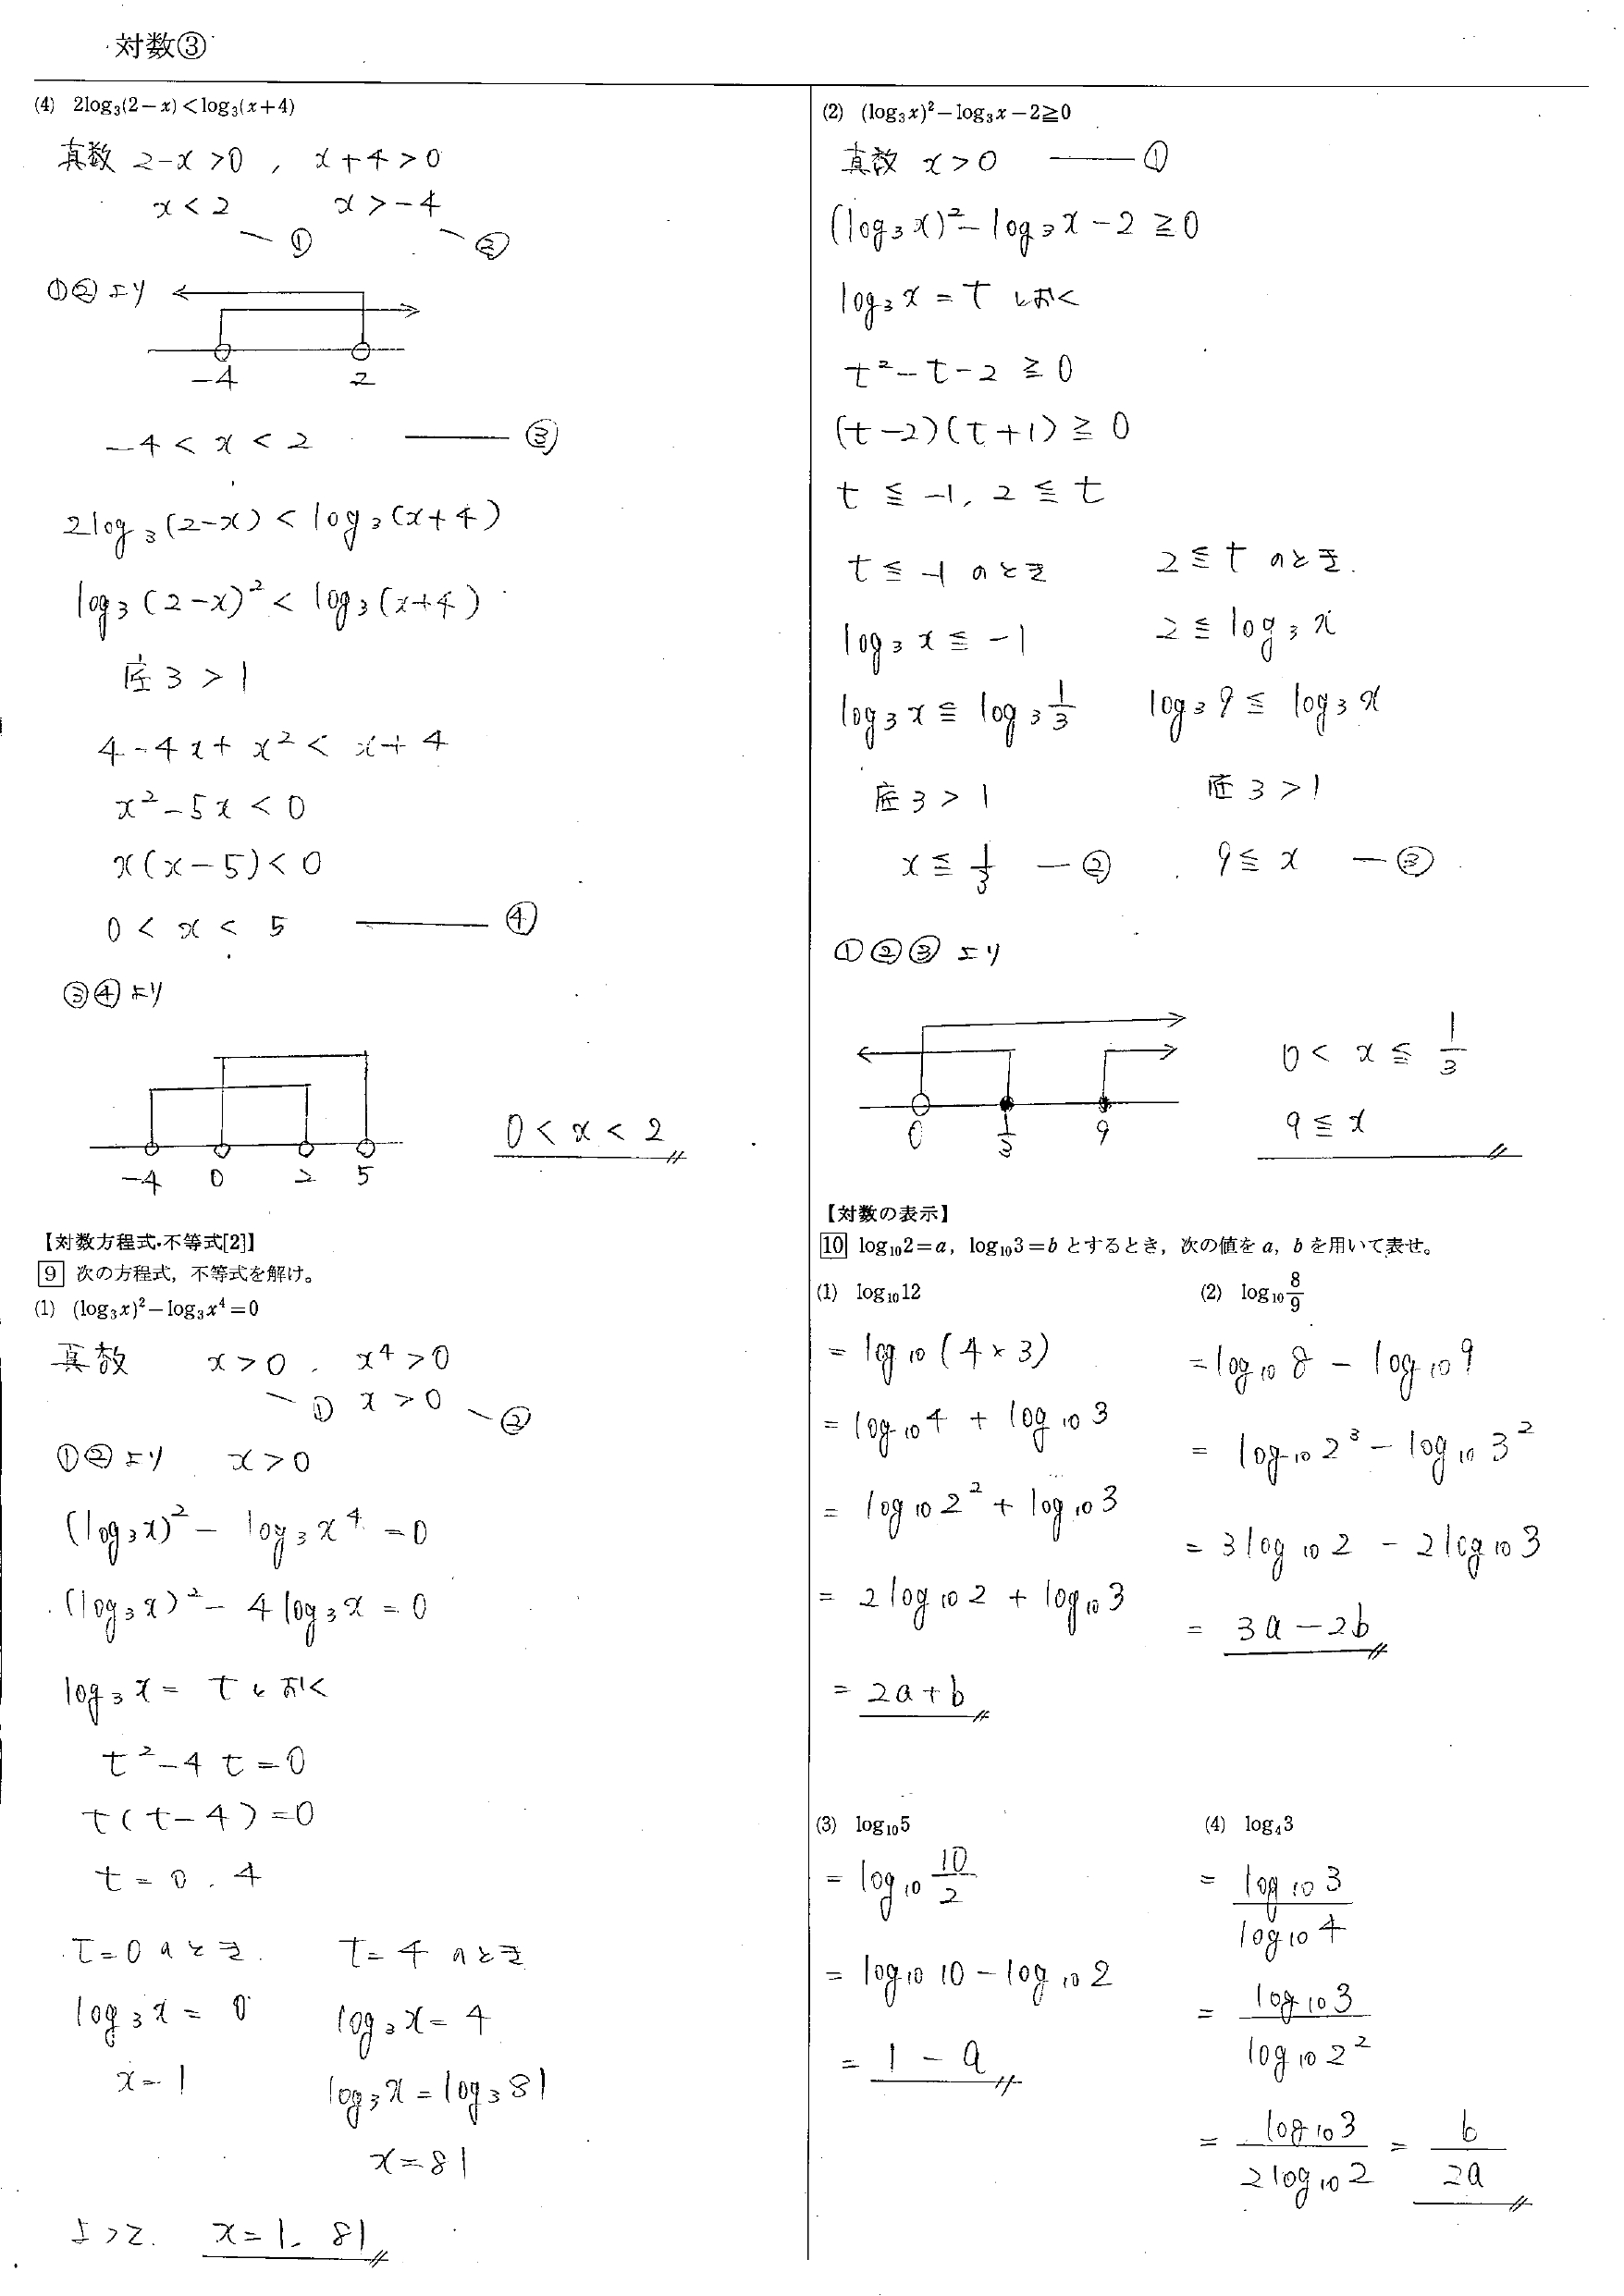 対数③
(4) 2log₃(2－x)＜log₃(x＋4)
真数 2-x>0 , x+4>0
x<2 x>-4
－① －②
①②より
-4 2
-4<x<2 ―③
2log₃(2-x)<log₃(x+4)
log₃(2-x)²<log₃(x+4)
底3>1
4-4x+x²<x+4
x²-5x<0
x(x-5)<0
0<x<5 ―④
③④より
-4 0 2 5
0<x<2
【対数方程式・不等式[2]】
9 次の方程式，不等式を解け。
(1) (log₃x)²－log₃x⁴＝0
真数 x>0 , x⁴>0
－① x>0 －②
①②より x>0
(log₃x)²-log₃x⁴=0
(log₃x)²-4log₃x=0
log₃x=tとおく
t²-4t=0
t(t-4)=0
t=0, 4
t=0のとき. t=4のとき
log₃x=0 log₃x=4
x=1 log₃x=log₃81
x=81
よって. x=1, 81
(2) (log₃x)²－log₃x－2≧0
真数 x>0 ―①
(log₃x)²-log₃x-2≧0
log₃x=t とおく
t²-t-2≧0
(t-2)(t+1)≧0
t≦-1, 2≦t
t≦-1のとき 2≦tのとき.
log₃x≦-1 2≦log₃x
log₃x≦log₃1/3 log₃9≦log₃x
底3>1 底3>1
x≦1/3 －② 9≦x －③
①②③より
0 1/3 9
0<x≦1/3
9≦x
【対数の表示】
10 log₁₀2＝a，log₁₀3＝b とするとき，次の値を a，b を用いて表せ。
(1) log₁₀12 (2) log₁₀8/9
=log₁₀(4×3) =log₁₀8-log₁₀9
=log₁₀4+log₁₀3 =log₁₀2³-log₁₀3²
=log₁₀2²+log₁₀3 =3log₁₀2-2log₁₀3
=2log₁₀2+log₁₀3 =3a-2b
=2a+b
(3) log₁₀5 (4) log₄3
=log₁₀10/2 =log₁₀3/log₁₀4
=log₁₀10-log₁₀2 =log₁₀3/log₁₀2²
=1-a =log₁₀3/2log₁₀2=b/2a